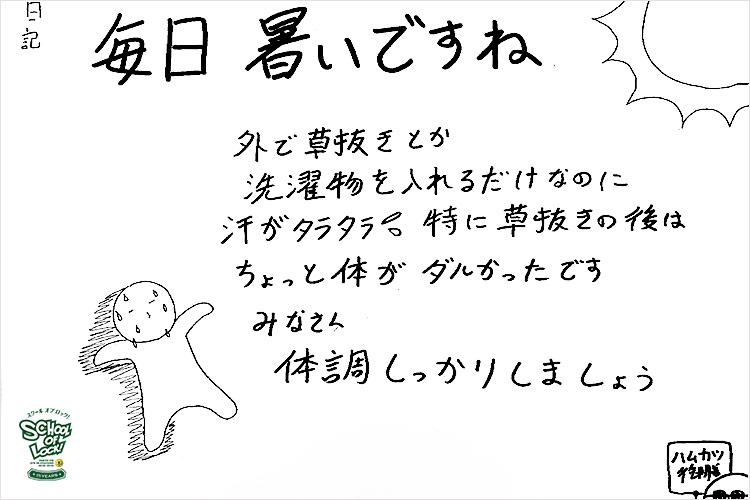 日記
毎日 暑いですね
外で草抜きとか
洗濯物を入れるだけなのに
汗がタラタラ 特に草抜きの後は
ちょっと体が ダルかったです
みなさん
体調しっかりしましょう
スクール オブ ロック!
SCHOOL
OF
LOCK!
ハムカツ